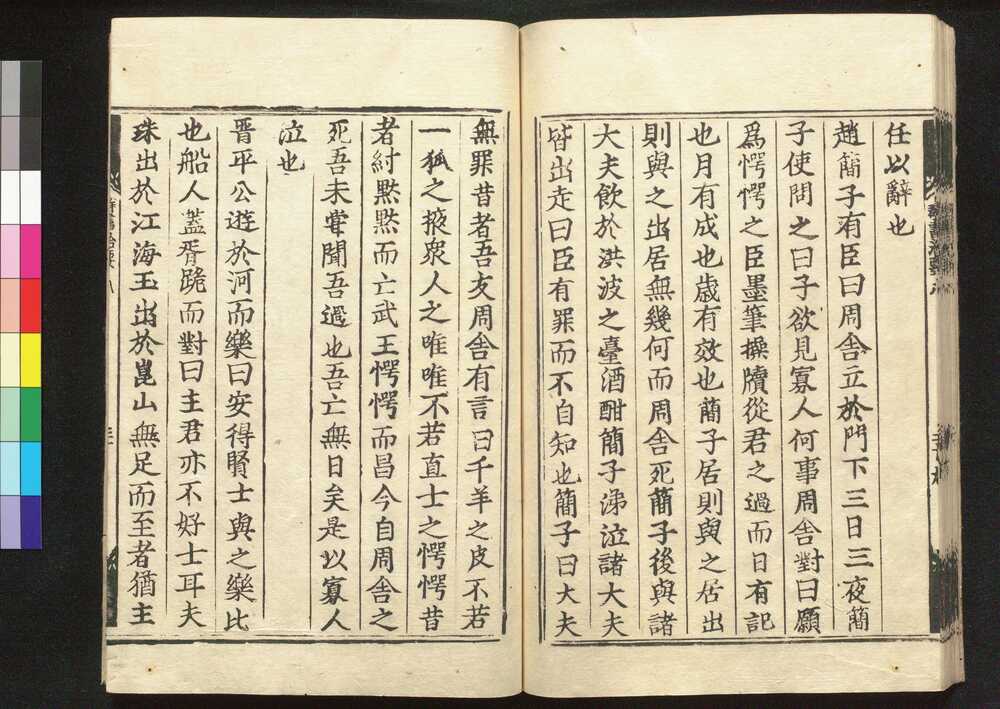 任以辭也
趙簡子有臣曰周舎立於門下三日三夜簡
子使問之曰子欲見寡人何事周舎對曰願
爲愕愕之臣墨筆操牘從君之過而日有記
也月有成也歳有效也蕳子居則與之居出
則與之出居無幾何而周舎死蕳子後與諸
大夫飲於洪波之臺酒酣簡子涕泣諸大夫
皆出走曰臣有罪而不自知也簡子曰大夫
無罪昔者吾友周舎有言曰千羊之皮不若
一狐之掖衆人之唯唯不若直士之愕愕昔
者紂黙黙而亡武王愕愕而昌今自周舎之
死吾未甞聞吾過也吾亡無日矣是以寡人
泣也
晋平公遊於河而樂曰安得賢士與之樂比
也船人蓋胥跪而對曰主君亦不好士耳夫
珠出於江海玉出於崑山無足而至者猶主